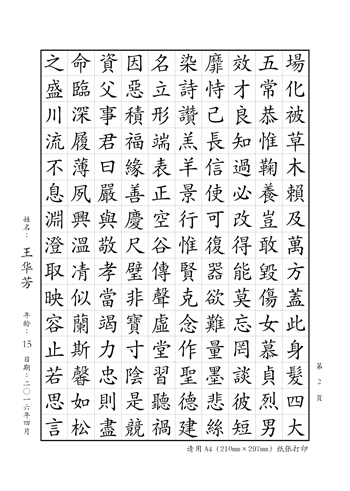 場化被草木賴及萬方蓋此身髮四大
五常恭惟鞠養豈敢毀傷女慕貞烈男
效才良知過必改得能莫忘罔談彼短
靡恃己長信使可復器欲難量墨悲絲
染詩讚羔羊景行惟賢克念作聖德建
名立形端表正空谷傳聲虛堂習聽禍
因惡積福緣善慶尺璧非寶寸陰是競
資父事君曰嚴與敬孝當竭力忠則盡
命臨深履薄夙興溫凊似蘭斯馨如松
之盛川流不息淵澄取映容止若思言
姓名：王华芳 年龄：15 日期：二〇一六年四月
第 2 页
请用 A4（210mm×297mm）纸张打印